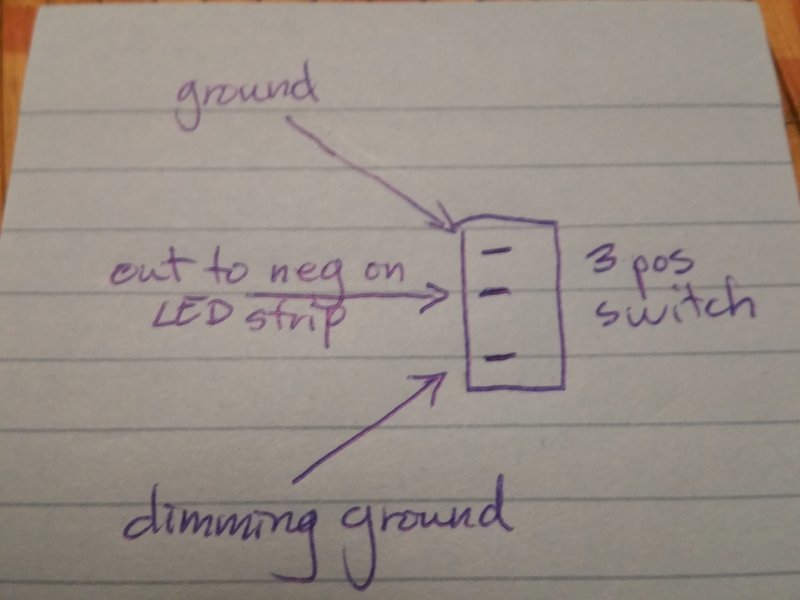 ground
out to neg on
LED strip
3 pos
switch
dimming ground